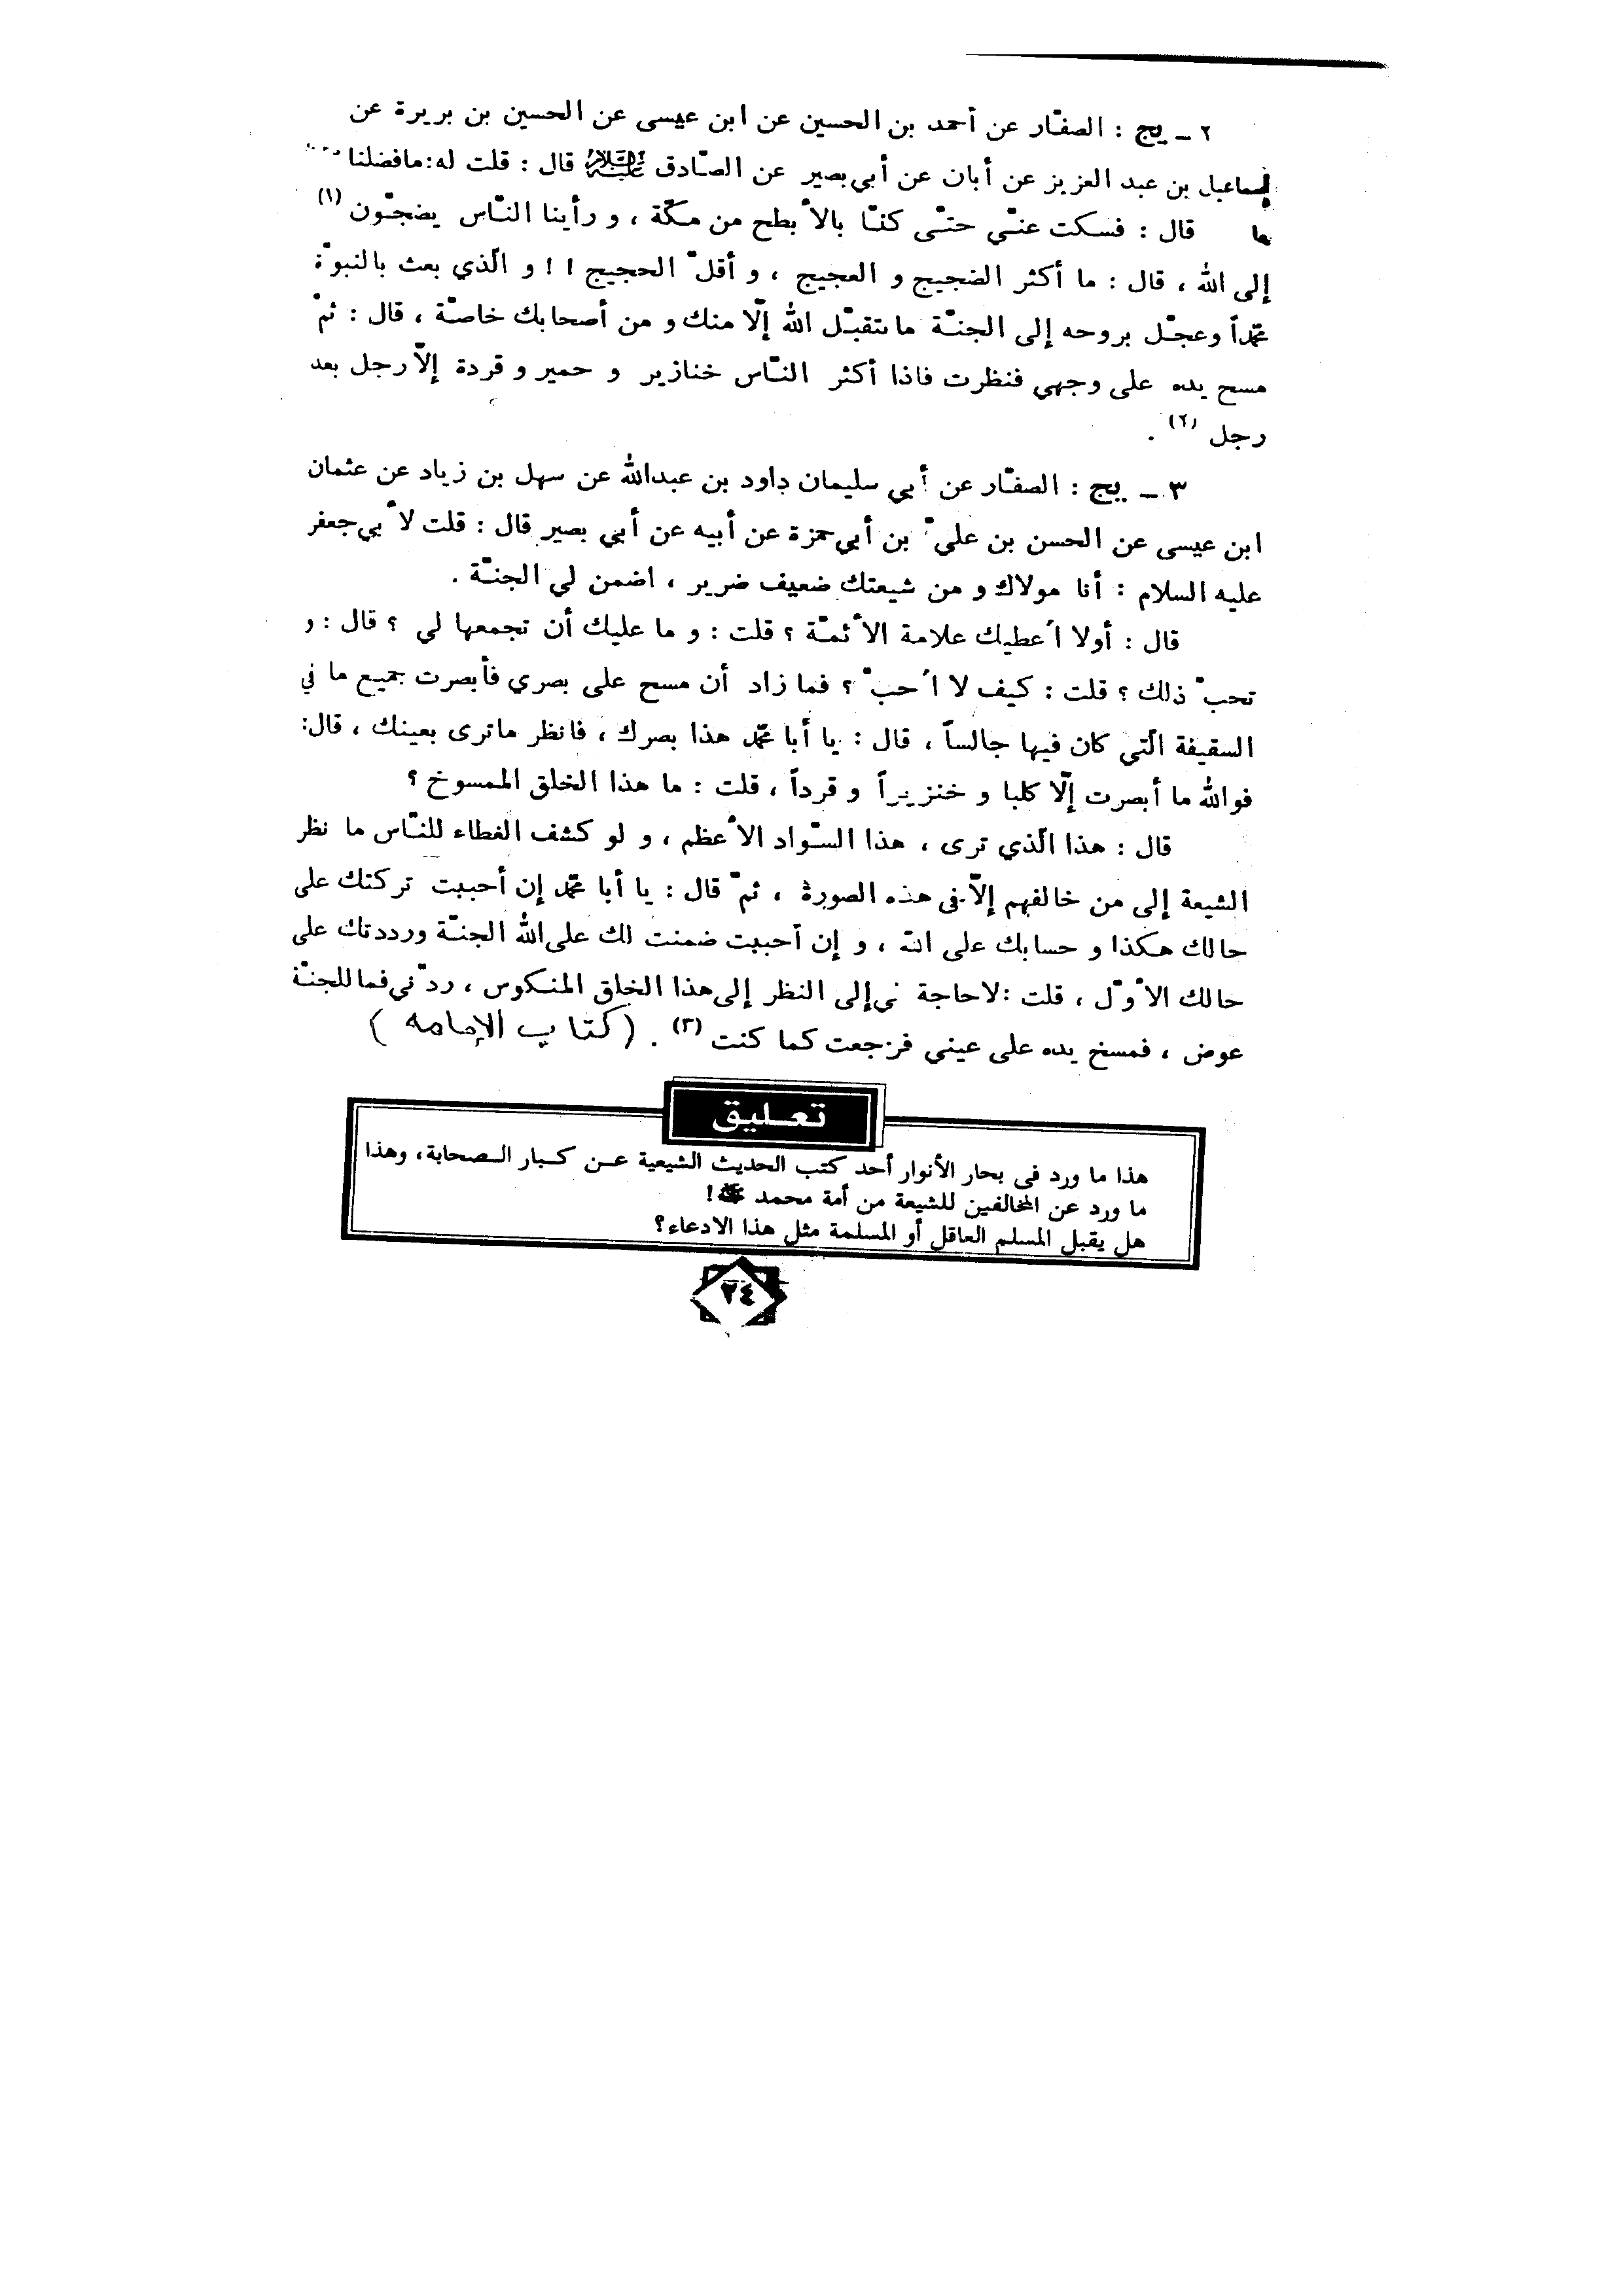 ٢ ـ يج : الصفّار عن أحمد بن الحسين عن ابن عيسى عن الحسين بن بريرة عن
إسماعيل بن عبد العزيز عن أبان عن أبي بصير عن الصّادق عليه السلام قال : قلت له : ما فضلنا
قال : فسكت عنّي حتّى كنّا بالأبطح من مكّة ، و رأينا النّاس يضجّون (١)
إلى الله ، قال : ما أكثر الضجيج و العجيج ، و أقلّ الحجيج ! ! و الّذي بعث بالنبوّة
محمّداً وعجّل بروحه إلى الجنّة ما يتقبّل الله إلّا منك و من أصحابك خاصّة ، قال : ثمّ
مسح يده على وجهي فنظرت فاذا أكثر النّاس خنازير و حمير و قردة إلّا رجل بعد
رجل (٢) .
٣ ـ يج : الصفّار عن أبي سليمان داود بن عبدالله عن سهل بن زياد عن عثمان
ابن عيسى عن الحسن بن عليّ بن أبي حمزة عن أبيه عن أبي بصير قال : قلت لأبي جعفر
عليه السلام : أنا مولاك و من شيعتك ضعيف ضرير ، اضمن لي الجنّة .
قال : أولا أُعطيك علامة الأئمّة ؟ قلت : و ما عليك أن تجمعها لي ؟ قال : و
تحبّ ذلك ؟ قلت : كيف لا أُحبّ ؟ فما زاد أن مسح على بصري فأبصرت جميع ما في
السقيفة الّتي كان فيها جالساً ، قال : يا أبا محمّد هذا بصرك ، فانظر ماترى بعينك ، قال:
فوالله ما أبصرت إلّا كلبا و خنزيراً و قرداً ، قلت : ما هذا الخلق الممسوخ ؟
قال : هذا الّذي ترى ، هذا السّواد الأعظم ، و لو كشف الغطاء للنّاس ما نظر
الشيعة إلى من خالفهم إلّا في هذه الصورة ، ثمّ قال : يا أبا محمّد إن أحببت تركتك على
حالك هكذا و حسابك على الله ، و إن أحببت ضمنت لك على الله الجنّة ورددتك على
حالك الأوّل ، قلت : لاحاجة لي إلى النظر إلى هذا الخلق المنكوس ، ردّني فما للجنّة
عوض ، فمسح يده على عيني فرجعت كما كنت (٣) . ( كتاب الإمامه )
تعليق
هذا ما ورد فى بحار الأنوار أحد كتب الحديث الشيعية عن كبار الصحابة، وهذا
ما ورد عن المخالفين للشيعة من أمة محمد ﷺ!
هل يقبل المسلم العاقل أو المسلمة مثل هذا الادعاء؟
٢٤